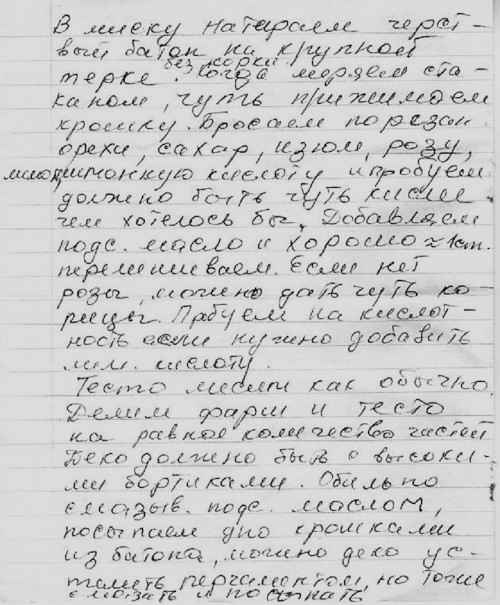 В миску натираем черст-
вый батон на крупной
без корки
терке. Когда меряем ста-
каном, чуть прижимаем
крошку. Бросаем порезан.
орехи, сахар, изюм, розу,
лимонную кислоту и пробуем
должно быть чуть кислее
чем хотелось бы. Добавляем
подс. масло и хорошо ≈ 1 ст.
перемешиваем. Если нет
розы, можно дать чуть ко-
рицы. Пробуем на кислот-
ность если нужно добавить
лим. кислоту.
Тесто месим как обычно.
Делим фарш и тесто
на равное количество частей
Деко должно быть с высоки-
ми бортиками. Обильно
смазыв. подс. маслом,
посыпаем дно крошками
из батона, можно деко ус-
телить пергаментом, но тоже
смазать и посыпать